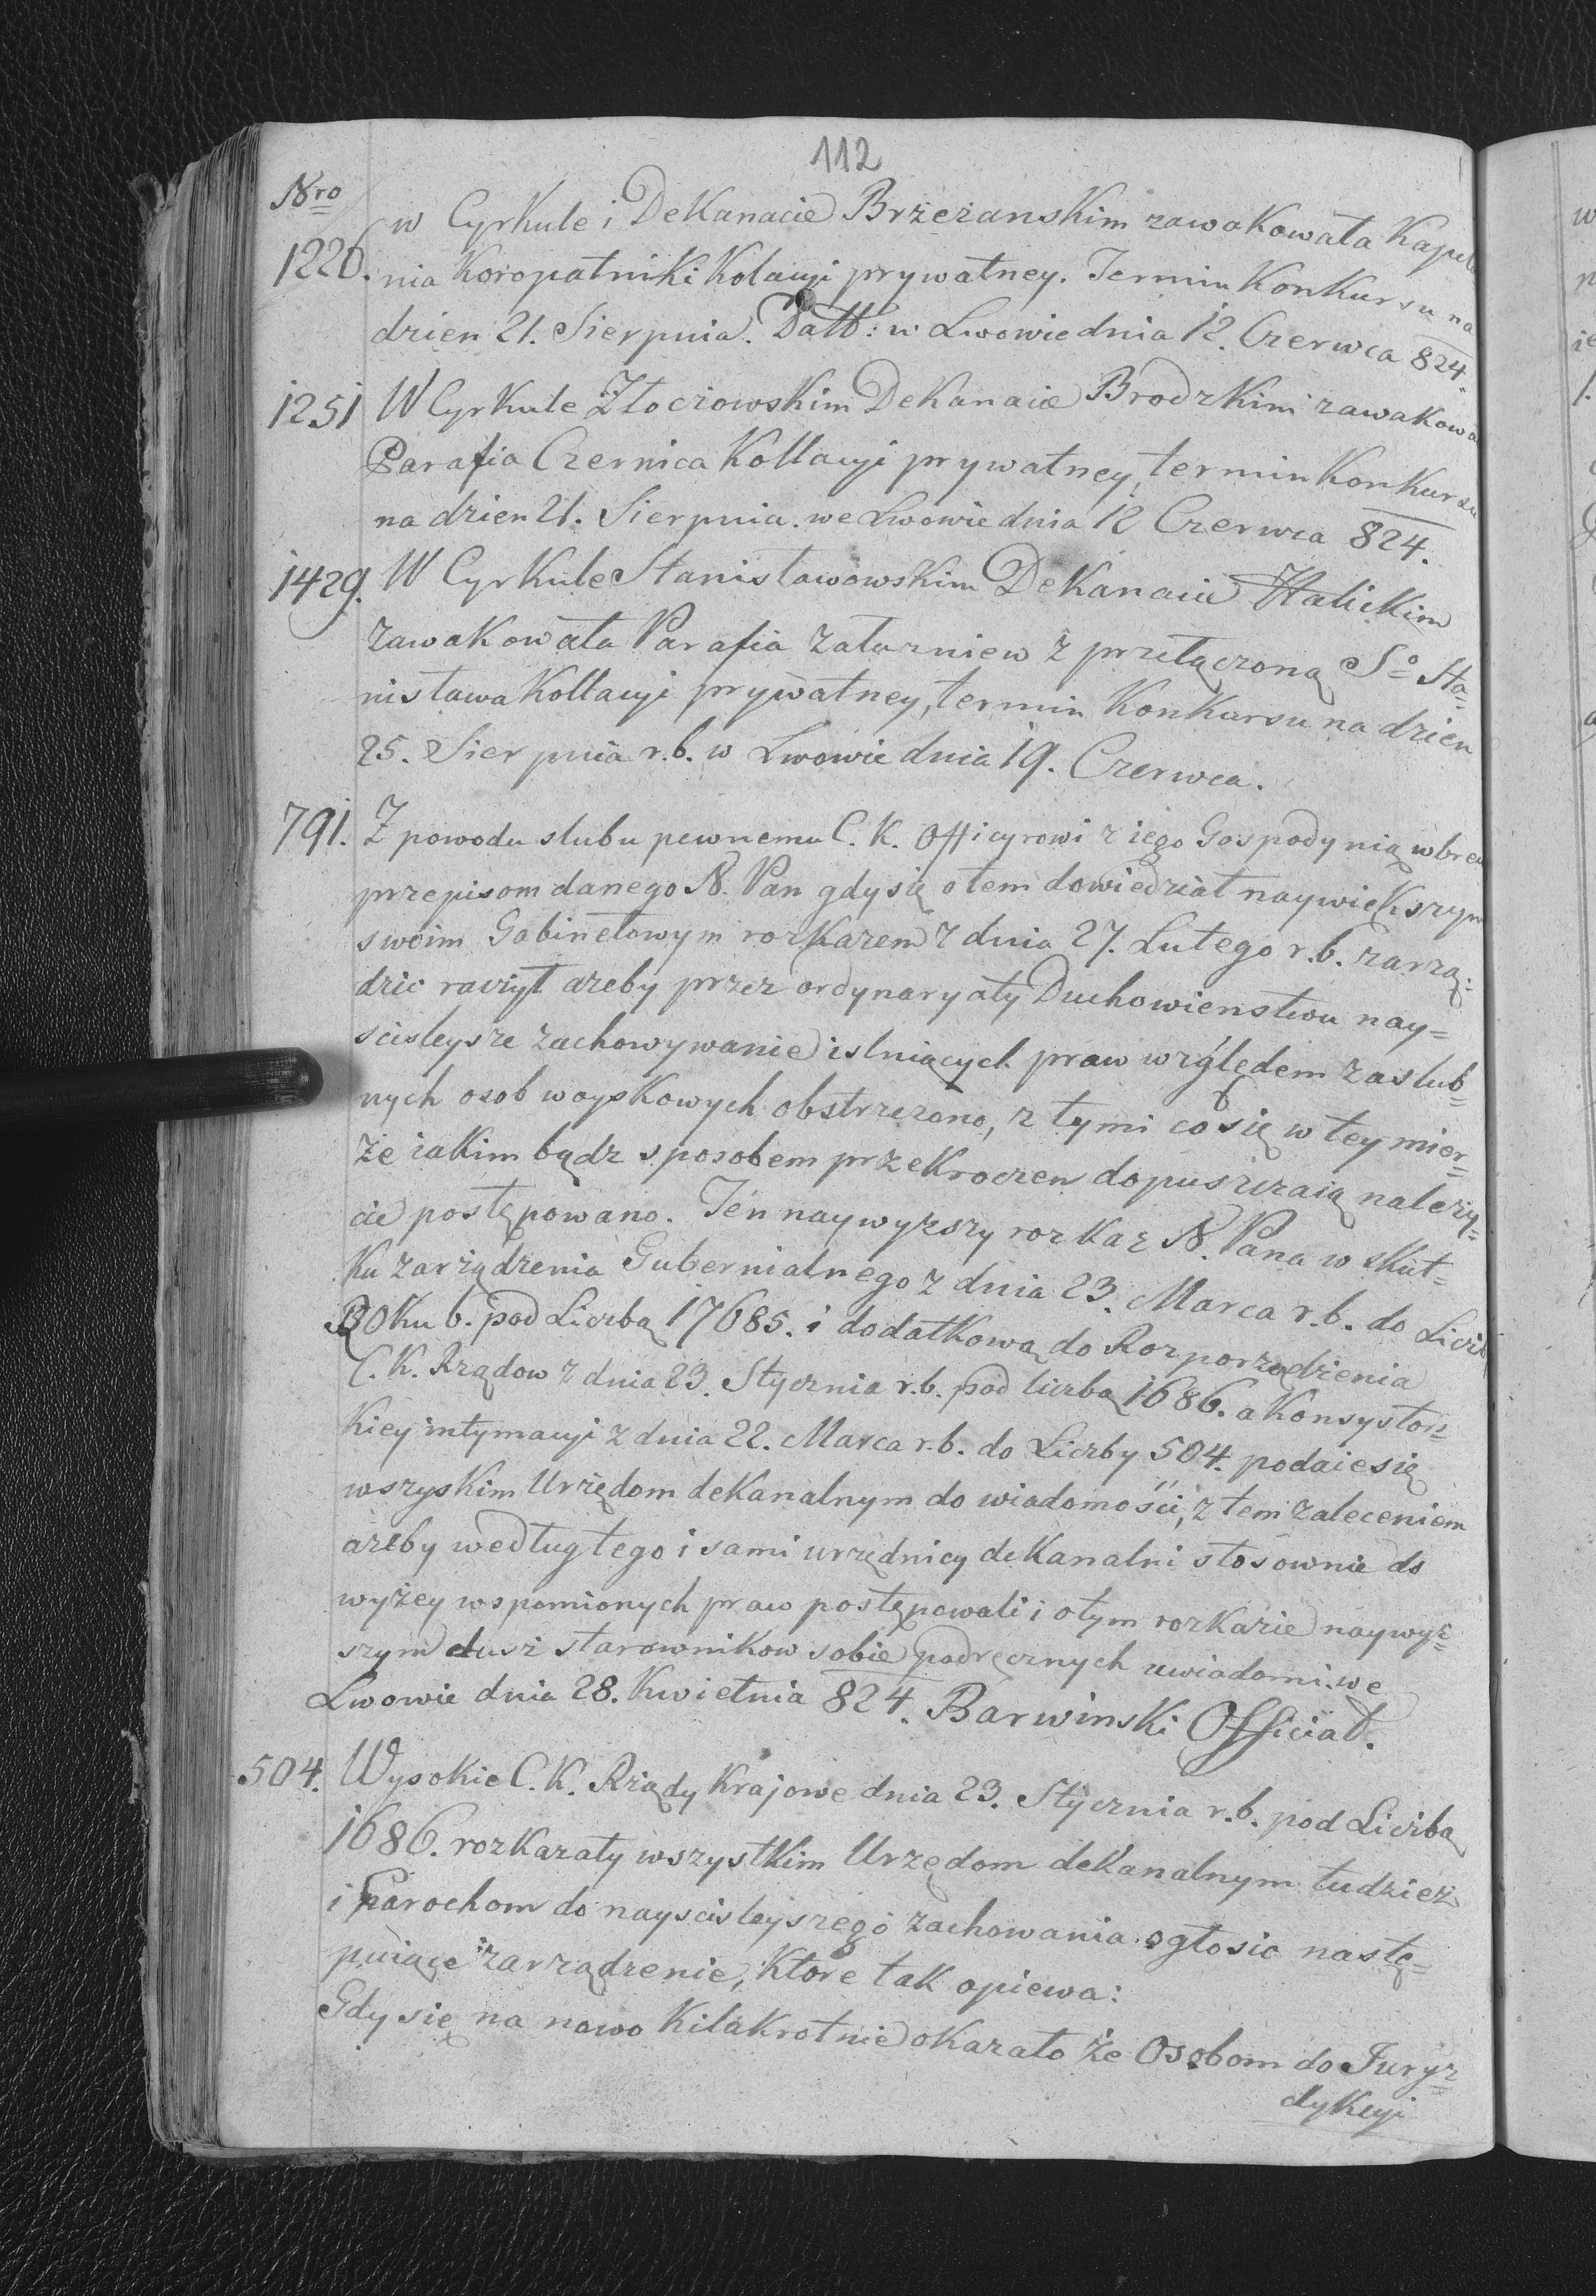 112
Nro
w Cyrkule i Dekanacie Brzeżanskim zawakowała Kapela
1226. nia Koropatniki Kolacyi prywatney. Termin Konkursu na
dzien 21. Sierpnia. Datt: w Lwowie dnia 12. Czerwca 824.
1251 W Cyrkule Złoczowskim Dekanacie Brodzkim zawakowa
Parafia Czernica Kollacyi prywatney, termin Konkursu
na dzien 21. Sierpnia. we Lwowie dnia 12 Czerwca 824.
1429. W Cyrkule Stanisławowskim Dekanacie Halickim
zawakowała Parafia Załuzniew z przełączoną So Sta=
nisława Kollacyi prywatney, termin Konkursu na dzien
25. Sierpnia r.b. w Lwowie dnia 19. Czerwca.
791. Z powodu slubu pewnemu C. K. Officyrowi z iego Gospodynią wbrew
przepisom danego N. Pan gdy się o tem dowiedział naywiększym
swoim Gabinetowym rozkazem z dnia 27. Lutego r.b. zarzą=
dzic raczył azeby przez ordynaryaty Duchowienstwu nay=
scisleysze zachowywanie istniących praw względem zaslub=
nych osob woyskowych obstrzezono, z tymi co się w tey mier=
ze iakim bądz sposobem przekroczen dopuszczaią nalezy=
cie postępowano. Ten naywyzszy rozkaz N. Pana w skut=
ku zarządzenia Gubernialnego z dnia 23. Marca r.b. do Liczb
Roku b. pod Liczbą 17685. i dodatkową do Rozporządzenia
C. K. Rządow z dnia 23. Stycznia r.b. pod liczbą 1686. a Konsystors=
kiey intymacyi z dnia 22. Marca r.b. do Liczby 504. podaie się
wszyskim Urzędom dekanalnym do wiadomości, z tem zaleceniem
azeby według tego i sami urzędnicy dekanalni stosownie do
wyżey wspomionych praw postępowali i o tym rozkazie naywyz=
szym dusz starownikow sobie podręcznych uwiadomi. we
Lwowie dnia 28. Kwietnia 824. Barwinski Officiał.
504. Wysokie C. K. Rządy Krajowe dnia 23. Stycznia r.b. pod Liczbą
1686. rozkazały wszystkim Urzędom dekanalnym tudziez
i Parochom do nayscisleyszego zachowania ogłosic nastę=
puiące zarządzenie, Ktore tak opiewa:
Gdy się na nowo Kilakrotnie okazało że Osobom do Juryz=
dykcyi